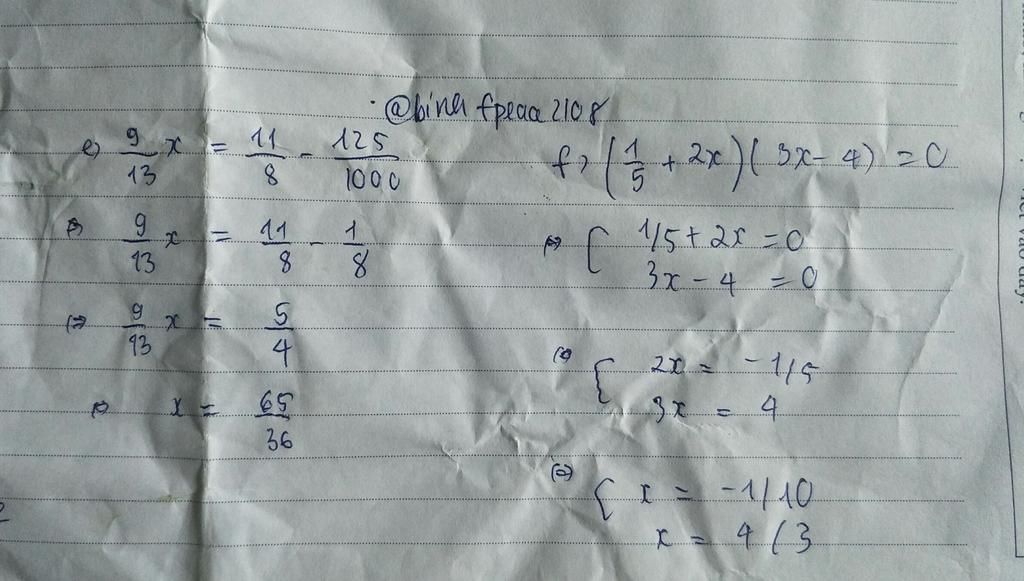 @bina fpeaa 2108
e) 9/13 x = 11/8 - 125/1000
⇔ 9/13 x = 11/8 - 1/8
⇔ 9/13 x = 5/4
⇔ x = 65/36
f) (1/5 + 2x)(3x - 4) = 0
⇔ [ 1/5 + 2x = 0
3x - 4 = 0
⇔ [ 2x = -1/5
3x = 4
⇔ [ x = -1/10
x = 4/3